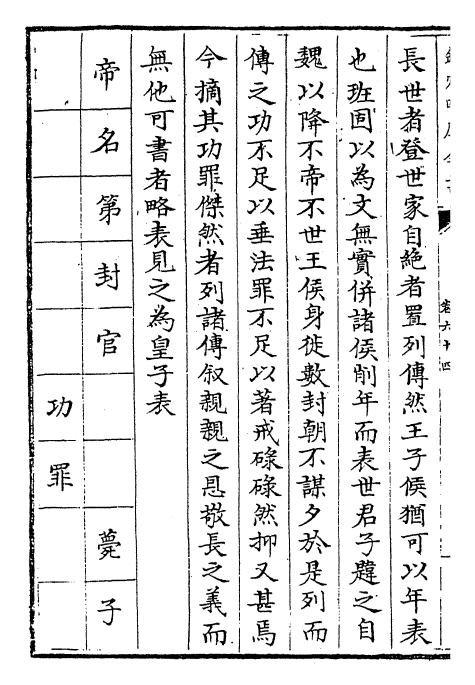 欽定四庫全書
卷六十四
長世者登世家自絶者置列傳然王子侯猶可以年表
也班固以為文無實併諸侯削年而表世君子韙之自
魏以降不帝不世王侯身徙數封朝不謀夕於是列而
傳之功不足以垂法罪不足以著戒碌碌然抑又甚焉
今摘其功罪傑然者列諸傳叙親親之恩敬長之義而
無他可書者略表見之為皇子表
帝名第封官
功罪
薨子